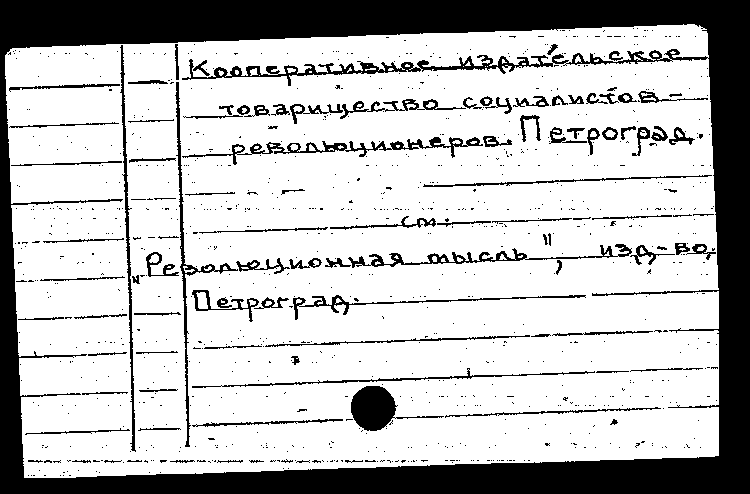 Кооперативное издательское
товарищество социалистов-
революционеров. Петроград.
см.
„Революционная мысль", изд-во,
Петроград.